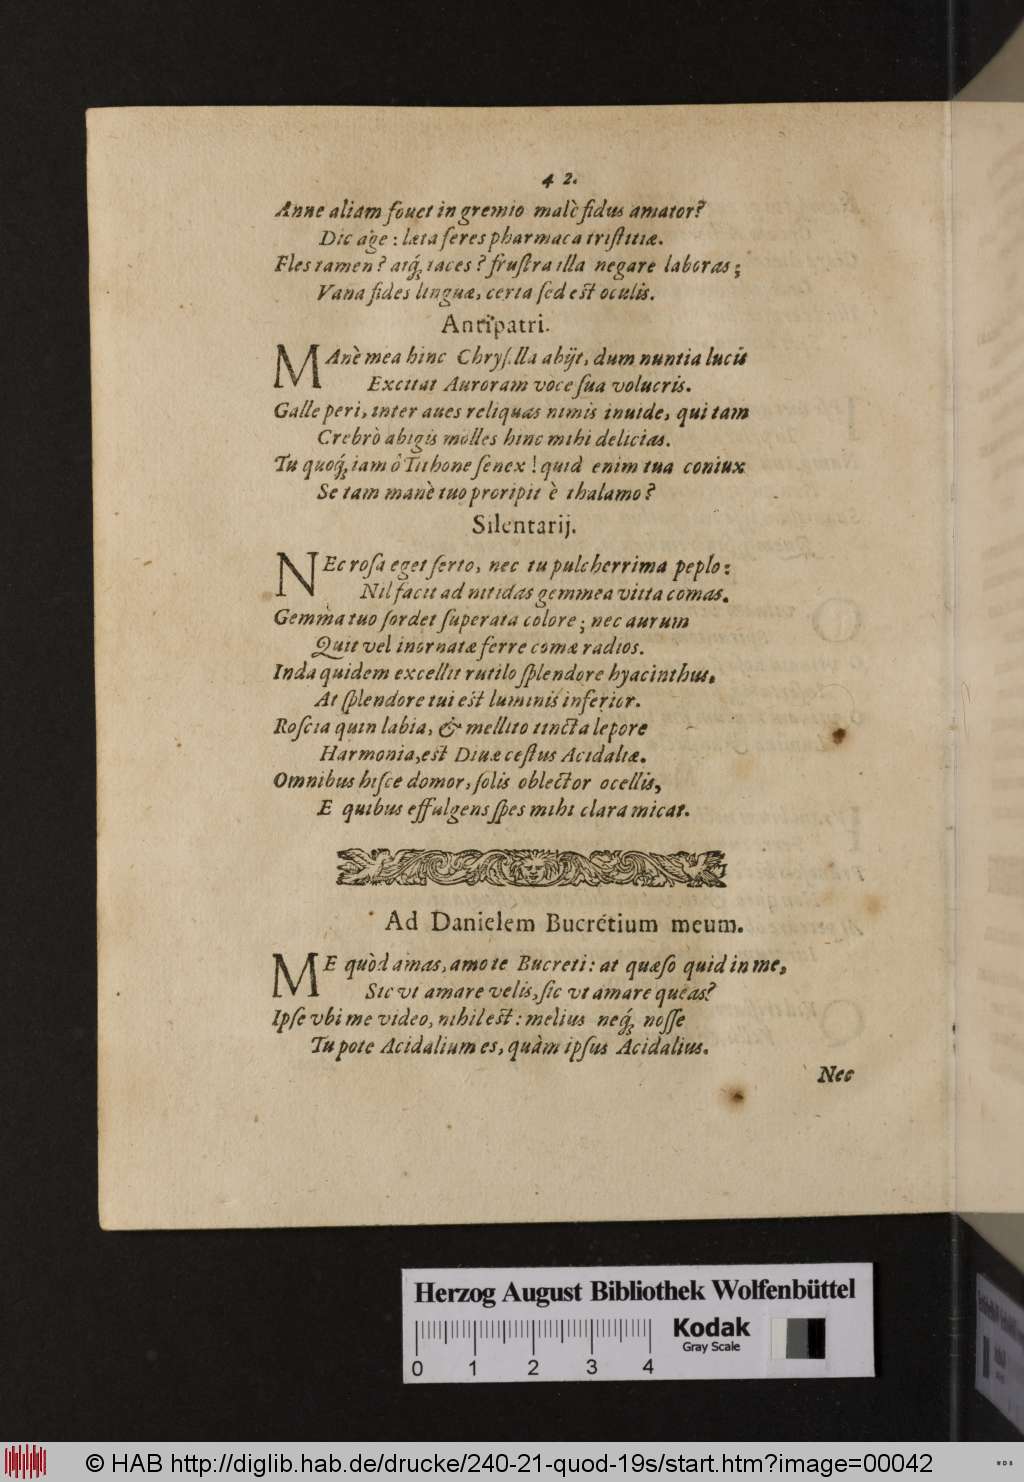 42.
Anne aliam fouet in gremio malè fidus amator?
Dic age: læta feres pharmaca tristitiæ.
Fles tamen? atq́; taces? frustra illa negare laboras;
Vana fides linguæ, certa sed est oculis.
Antipatri.
MAnè mea hinc Chrysilla abijt, dum nuntia lucis
Excitat Auroram voce sua volucris.
Galle peri, inter aues reliquas nimis inuide, qui tam
Crebrò abigis molles hinc mihi delicias.
Tu quoq́; iam ô Tithone senex! quid enim tua coniux
Se tam manè tuo proripit è thalamo?
Silentarij.
NEc rosa eget serto, nec tu pulcherrima peplo:
Nil facit ad nitidas gemmea vitta comas.
Gemma tuo sordet superata colore; nec aurum
Quit vel inornatæ ferre comæ radios.
Inda quidem excellit rutilo splendore hyacinthus.
At splendore tui est luminis inferior.
Roscia quin labia, & mellito tincta lepore
Harmonia, est Diuæ cestus Acidaliæ.
Omnibus hisce domor, solis oblector ocellis,
E quibus effulgens spes mihi clara micat.
Ad Danielem Bucretium meum.
ME quòd amas, amo te Bucreti: at quæso quid in me,
Sic vt amare velis, sic vt amare queas?
Ipse vbi me video, nihil est: melius neq́; nosse
Tu pote Acidalium es, quàm ipsus Acidalius.
Nec
Herzog August Bibliothek Wolfenbüttel
0 1 2 3 4
Kodak
Gray Scale
© HAB http://diglib.hab.de/drucke/240-21-quod-19s/start.htm?image=00042